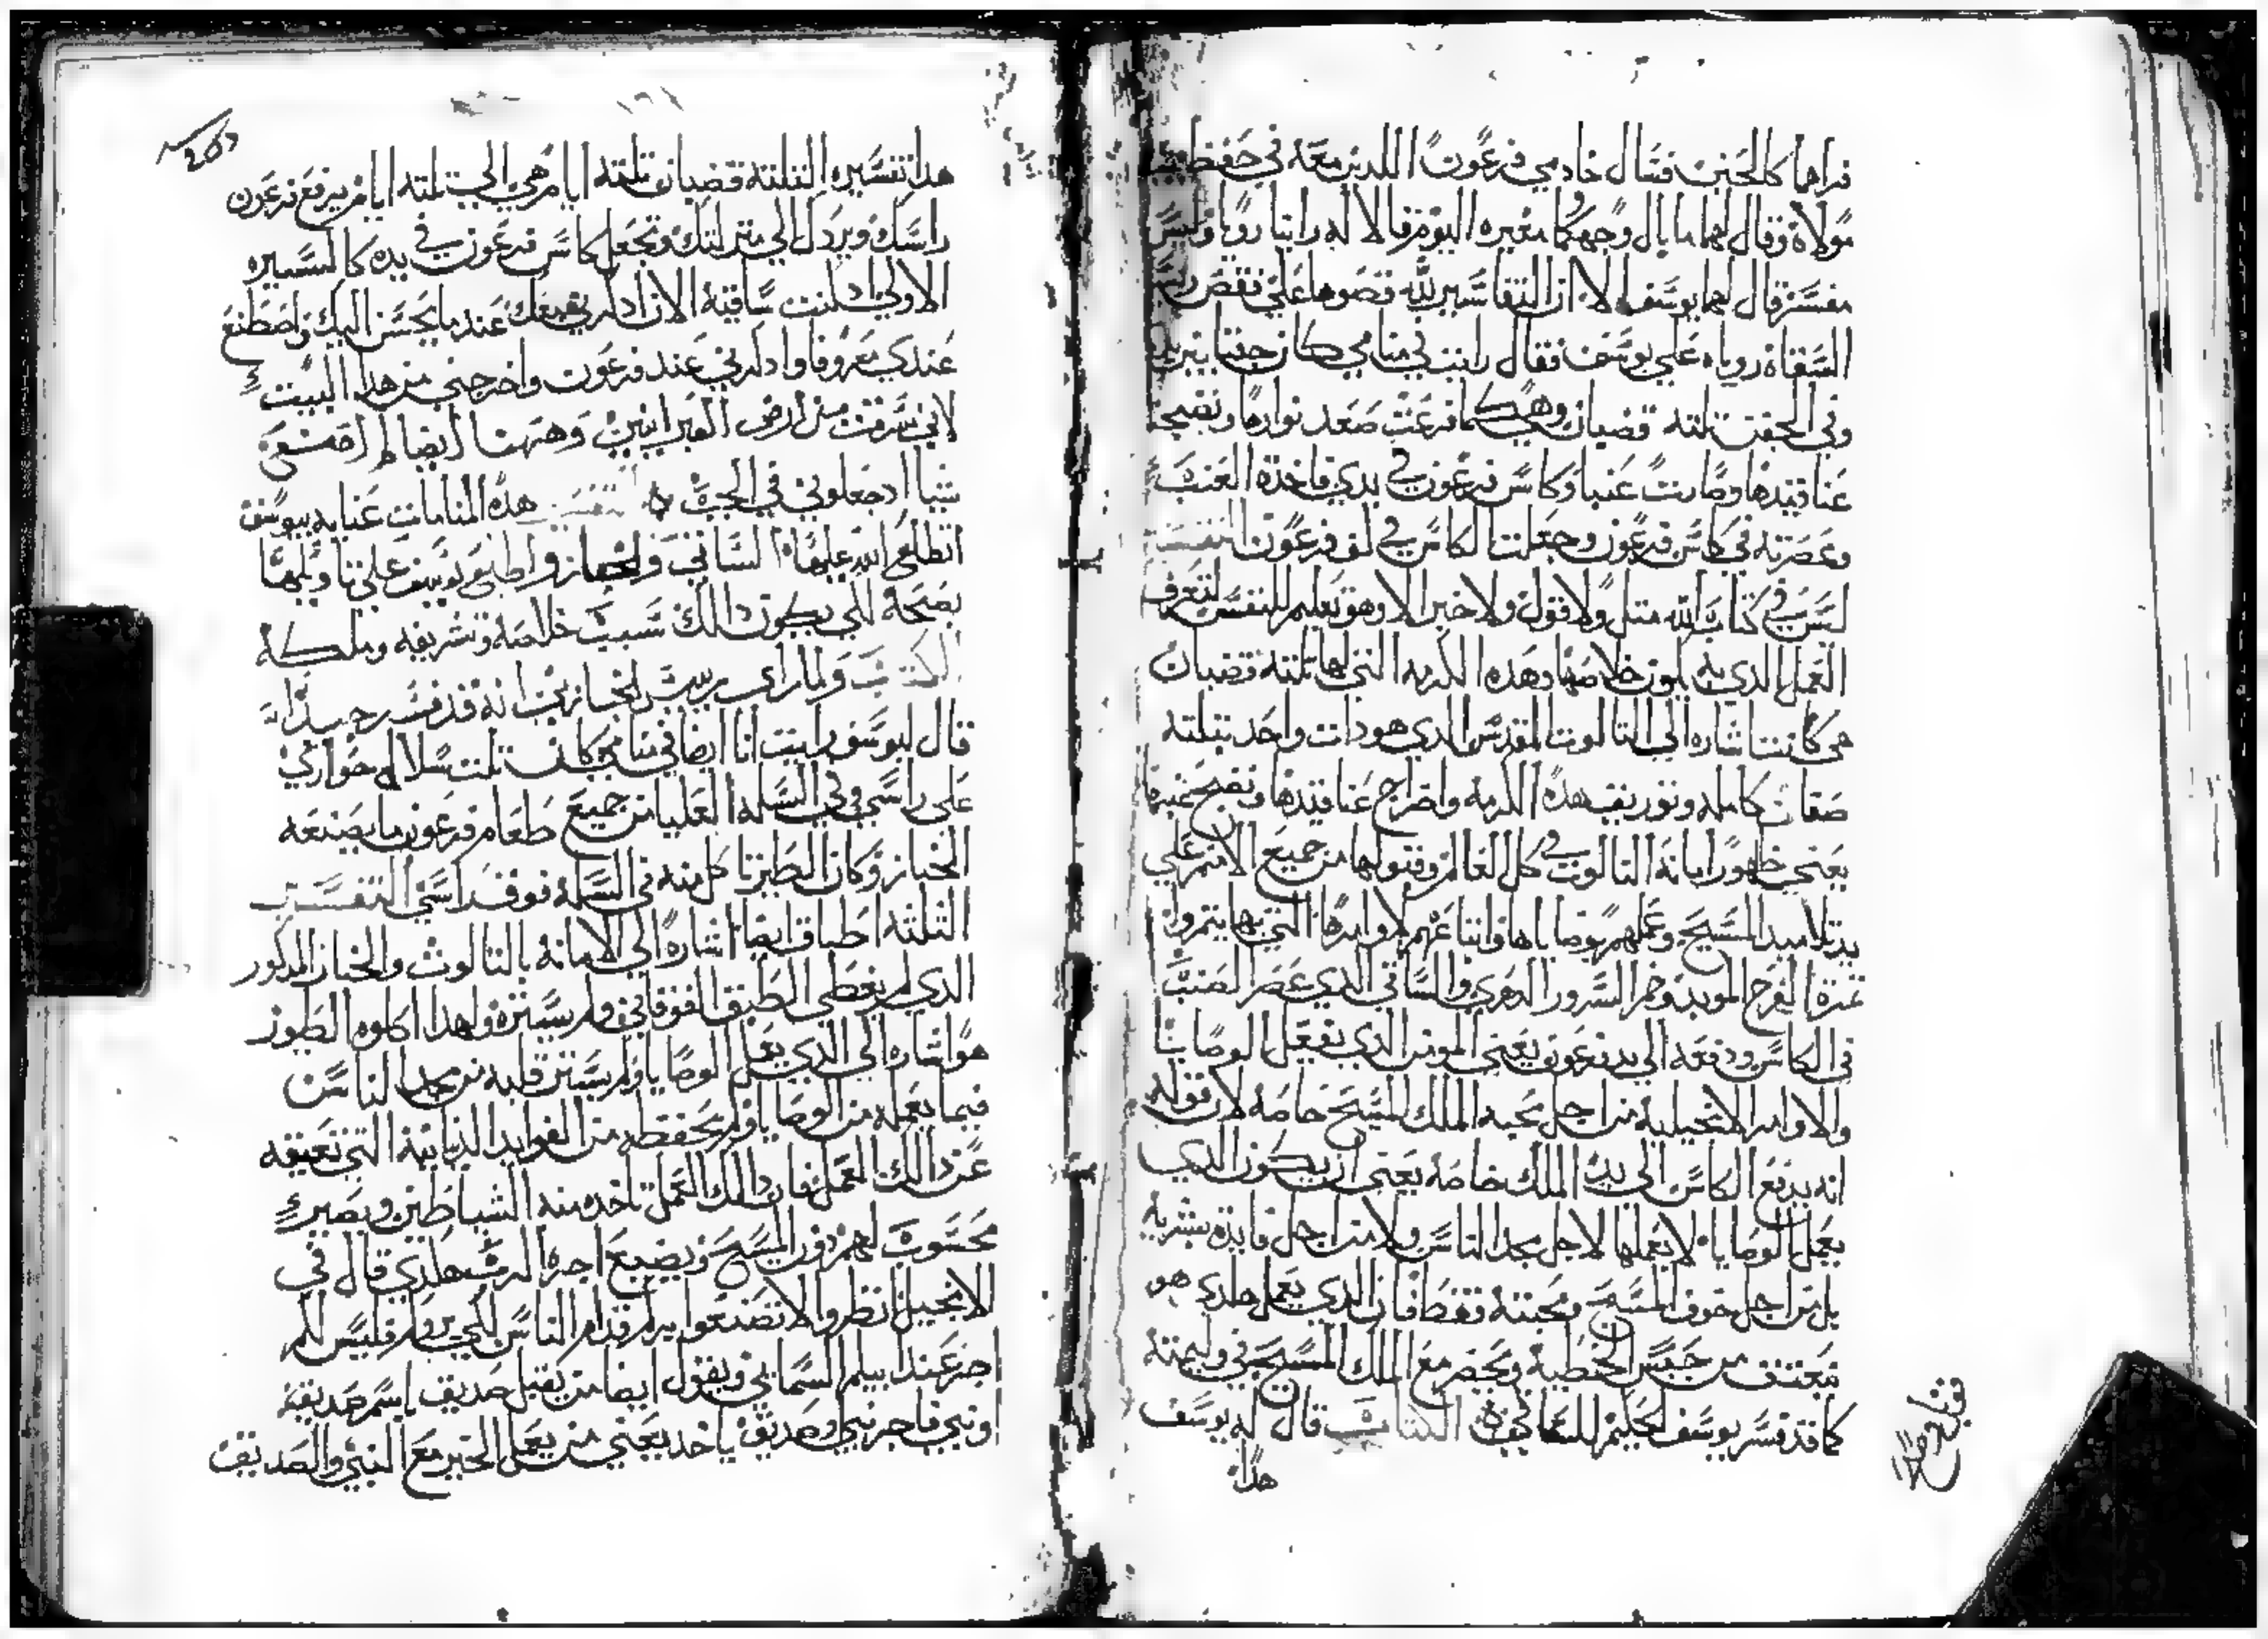 فراهما كالحزنين فسال خادمي فرعون اللدين معه في حفظ
مولاة وقال لهما ما بال وجهكما متغيره اليوم قالا له راينا رويا وليس
مفسر قال لهما يوسف لا ان التفاسير لله قصوها علي فقص رييس
السقاه روياه علي يوسف فقال رايت في منامي كان جفنا بين يدي
وفي الجفن تلته قضبان وهي كما فرعت صعد نوارها ونضجت
عناقيدها وصارت عنبا وكاس فرعون في يدي فاخدة العنب
وعصرته في كاس فرعون وجعلت الكاس في كف فرعون التفسير
ليس في كتاب الله متل ولا قول ولا خبر الا وهو تعليم للنفس لتعرف
العمل الدي به يكون خلاصها وهده الكرمه التي لها تلتة قضبان
هي كانت اشاره الي التالوت المقدس الدي هو دات واحد بتلته
صفات كامله وتوريق هده الكرمه واخراج عناقيدها ونضج عنبها
يعني ظهور امانة التالوت في كل العالم وقبولها من جميع الامم علي
يد تلاميد المسيح وعملهم بوصاياها واتباعهم لاوامرها التي بها يتمرون
تمرة الفرح الموبد وخمر السرور الدهري والساقي الدي عصر العنب
في الكاس ودفعه الي يد فرعون يعني المومن الدي يفعل الوصايا
والاوامر الانجيلية من اجل محبه الملك المسيح خاصه لان قوله
انه يدفع الكاس الي يد الملك خاصه يعني ان يكون الدي
يعمل الوصايا لا يعملها لاجل مجد الناس ولا من اجل فايدة بشريه
بل من اجل خوف المسيح ومحبته فقط فان الدي يعمل هكدي هو
يعتق من حبس الخطية ويحضر مع الملك المسيح في وليمته
كما قد فسر يوسف الحكيم للساقي الكتاب قال له يوسف
هدا
هدا تفسيره التلتة قضبان تلتة ايام هي الي تلتة ايام يرفع فرعون
راسك ويردك الي منزلتك وتجعل كاس فرعون في يده كالسيره
الاولي اد كنت ساقية الان ادكرني معك عندما يحسن اليك واصطنع
عندي معروفا وادكرني عند فرعون واخرجني من هدا البيت
لاني سرقت من ارض العبرانيين وهاهنا ايضا لم اصنع
شيا اد جعلوني في الجب تفسير هده المنامات عنايه بيوسف
اطلع الله عليها الساقي والخباز واطلع يوسف علي تاويلها
بصحة لكي يكون دالك سبب خلاصه وتشريفه وملكه
الكتاب ولما راي رييس الخبازين انه قد فسر جيدا
قال ليوسف رايت انا ايضا في منامي كان تلت سلال حواري
علي راسي وفي السله العليا من جميع طعام فرعون ما يصنعه
الخباز وكان الطير تاكل منه في السله فوق راسي التفسير
التلتة اطباق ايضا اشاره الي الامانه بالتالوث والخباز المدكور
الدي لم يغطي الطبق الفوقاني ولم يستره ولهدا اكلوه الطيور
هو اشاره الي الدي يعمل الوصايا ولم يستر قلبه من مجد الناس
فيما يعمله من الوصايا ولم يحفظه من الفوايد الدنيانية التي تعيقه
عن دالك العمل فان دالك العمل تاخده منه الشياطين ويصير
محسوب لهم دون المسيح ويضيع اجره الرب هكدي قال في
الانجيل انظروا لا تصنعوا بركم قدام الناس لكي يروكم فليس لكم
اجر عند ابيكم السمايي ويقول ايضا من يقبل صديق باسم صديق
او نبي فاجر نبي وصديق ياخد يعني من يعمل الخير مع النبي والصديق